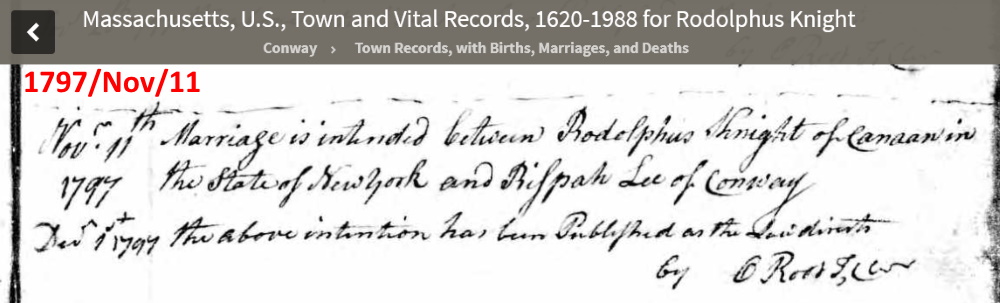 Massachusetts, U.S., Town and Vital Records, 1620-1988 for Rodolphus Knight
Conway › Town Records, with Births, Marriages, and Deaths
1797/Nov/11
Novr. 11th Marriage is intended between Rodolphus Knight of Canaan in
1797 the State of New York and Rispah Lee of Conway
Decr 1st 1797 the above intention has been Published as the Law directs
by O Root T, Cler